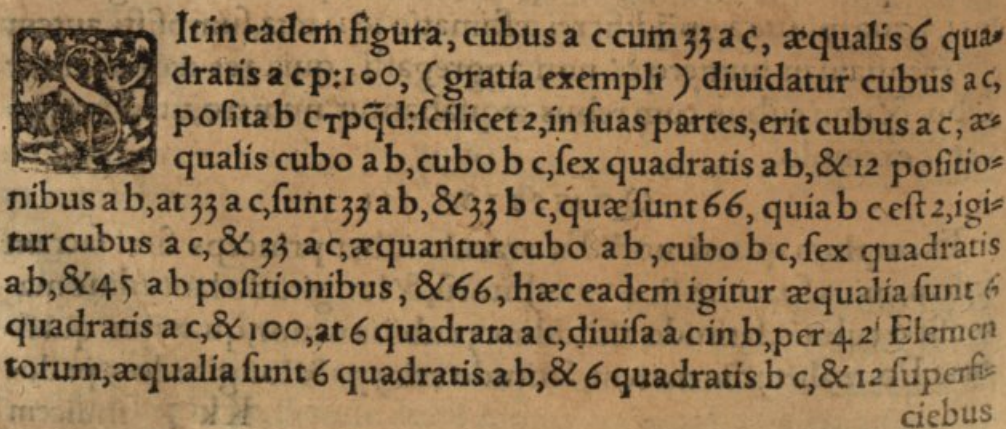 SIt in eadem figura, cubus a c cum 33 a c, æqualis 6 qua-
dratis a c p:100, (gratia exempli) diuidatur cubus a c,
posita b c Tpq̃d:scilicet 2, in suas partes, erit cubus a c, æ-
qualis cubo a b, cubo b c, sex quadratis a b, & 12 positio-
nibus a b, at 33 a c, sunt 33 a b, & 33 b c, quæ sunt 66, quia b c est 2, igi-
tur cubus a c, & 33 a c, æquantur cubo a b, cubo b c, sex quadratis
a b, & 45 a b positionibus, & 66, hæc eadem igitur æqualia sunt 6
quadratis a c, & 100, at 6 quadrata a c, diuisa a c in b, per 4 2ⁱ Elemen
torum, æqualia sunt 6 quadratis a b, & 6 quadratis b c, & 12 superfi-
ciebus